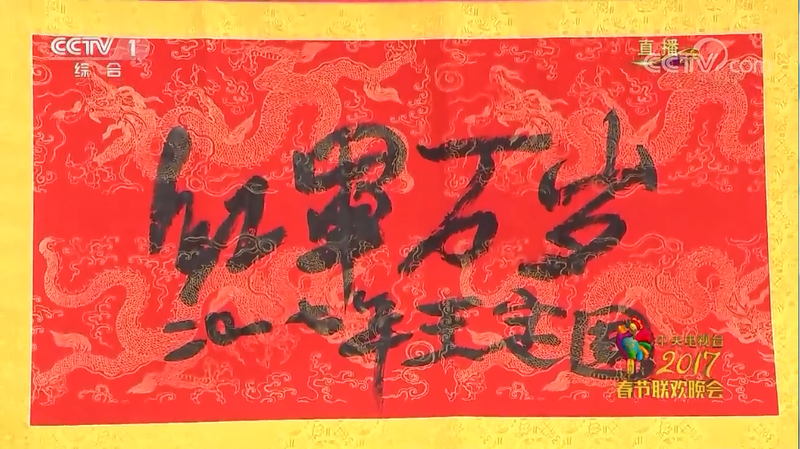 CCTV 1
综合
直播
CCTV.com
红军万岁
二〇一七年王定国
中央电视台
2017
春节联欢晚会